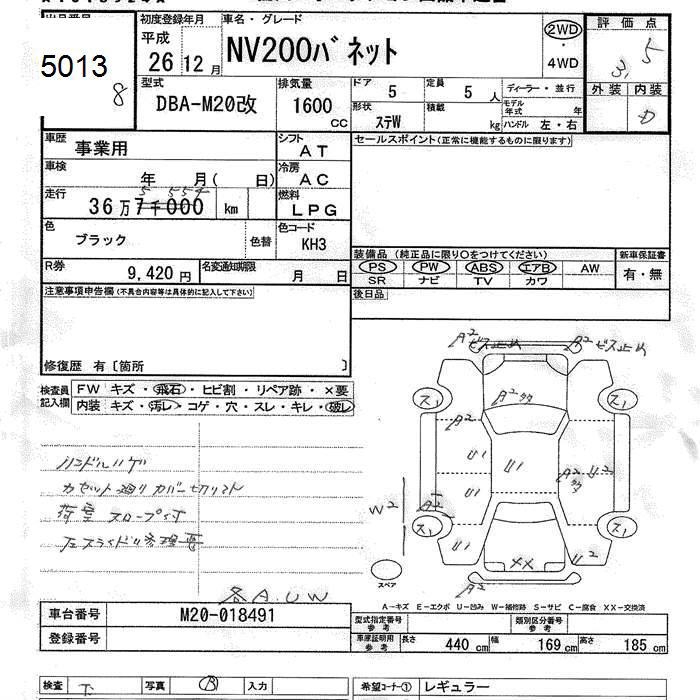 初度登録年月 車名・グレード 評価点
平成 NV200バネット 2WD
5013 26 12月 ・4WD 3.5
8 型式 排気量 ドア 定員 ディーラー・並行 外装 内装
DBA-M20改 1600 CC 5 5人 モデル年式 年 D
形状 ステW 積載 kg ハンドル 左・右
車歴 事業用 シフト AT セールスポイント(正常に機能するものに限ります)
車検 年 月( 日) 冷房 AC
走行 5 554
36万7千000 km 燃料 LPG
色 ブラック 色替 色コード KH3
装備品(純正品に限り○をつけてください) 新車保証書
R券 9,420円 名変通知期限 月 日 PS PW ABS エアB AW 有・無
SR ナビ TV カワ
注意事項申告欄(不具合内容等は具体的に記入して下さい) 後日品
修復歴 有〔箇所 〕
検査員記入欄 FW キズ・飛石・ヒビ割・リペア跡・×要
内装 キズ・汚レ・コゲ・穴・スレ・キレ・破レ
A2 ビス止め A2 ビス止め
ス1 A2 タタ ス1
A2
U1 U1 A2 タタ U2
U1
W2 A2
ス1 ス1
U1 XX U2
スペア A2
ハンドルハゲ
カセット廻りカバー切リトル
荷室スロープ付
左スライドドル修理書
各A.UW
A-キズ E-エクボ U-凹み W-補修跡 S-サビ C-腐食 XX-交換済
車台番号 M20-018491 型式指定番号参考 類別区分番号参考
登録番号 車庫証明用参考 長さ 440cm 幅 169cm 高さ 185cm
検査 写真 入力 希望コーナー① レギュラー